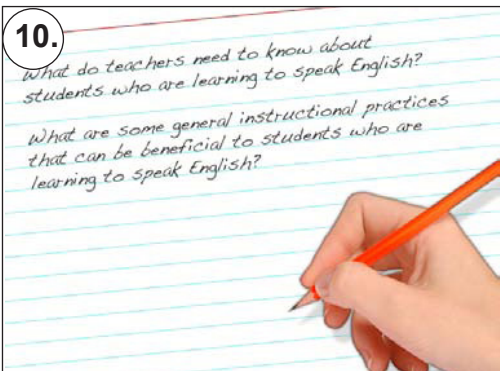 10.
What do teachers need to know about
students who are learning to speak English?
What are some general instructional practices
that can be beneficial to students who are
learning to speak English?